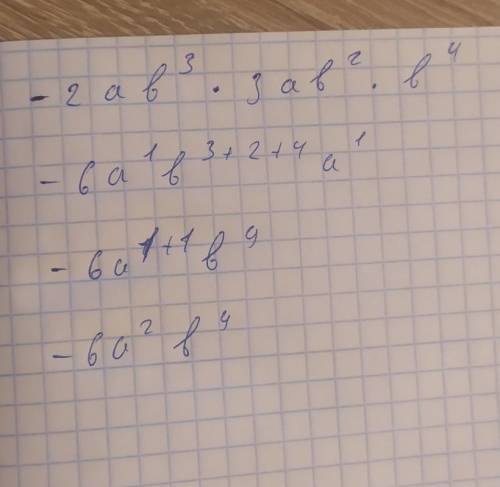 -2ab³ · 3ab² · b⁴
-6a¹b³⁺²⁺⁴a¹
-6a¹⁺¹b⁹
-6a²b⁹